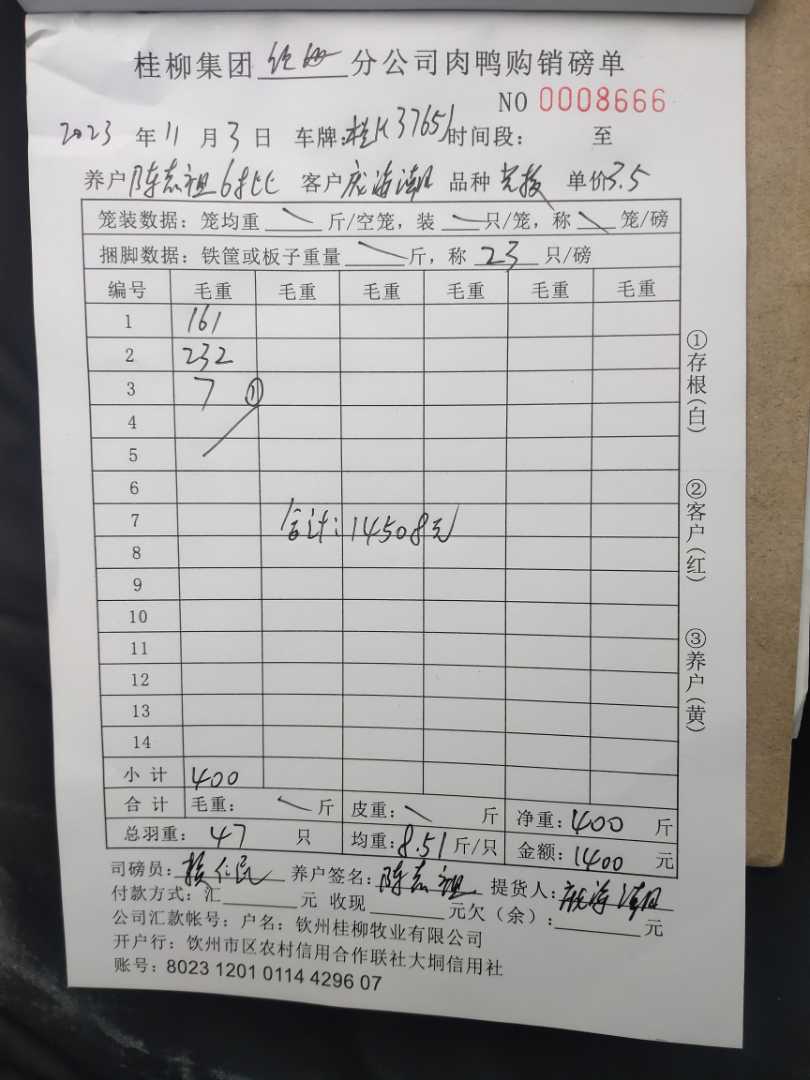 桂柳集团 分公司肉鸭购销磅单
NO 0008666
2023 年 11 月 3 日 车牌: 37651 时间段: 至
养户 陈志祖 6批 客户 庞海清 品种 单价 3.5
笼装数据: 笼均重 斤/空笼, 装 只/笼, 称 笼/磅
捆脚数据: 铁筐或板子重量 斤, 称 23 只/磅
编号 毛重 毛重 毛重 毛重 毛重 毛重
1 161
2 232
3 7 ①
4
5
6
7
合计: 14508元
8
9
10
11
12
13
14
小计 400
合计 毛重: 斤 皮重: 斤 净重: 400 斤
总羽重: 47 只 均重: 8.51 斤/只 金额: 1400 元
司磅员: 仁民 养户签名: 陈志祖 提货人: 海清
付款方式: 汇 元 收现 元欠(余): 元
公司汇款帐号: 户名: 钦州桂柳牧业有限公司
开户行: 钦州市区农村信用合作联社大垌信用社
账号: 8023 1201 0114 4296 07
①存根(白)
②客户(红)
③养户(黄)